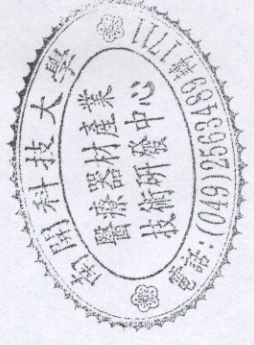 南開科技大學
醫療器材產業
技術研發中心
電話：(049)2563489轉1711